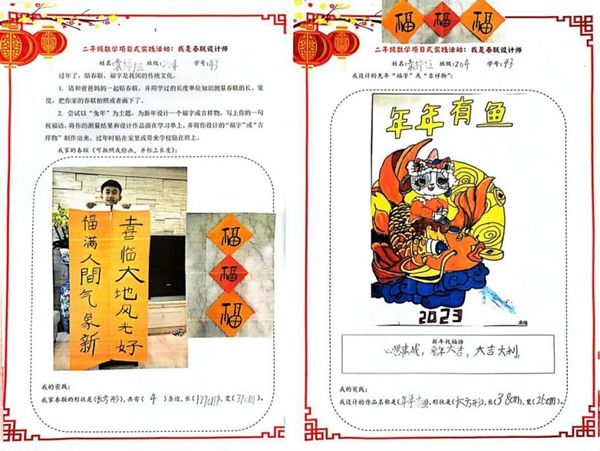 二年级数学项目式实践活动：我是春联设计师
姓名: 班级: 204 学号: 43
过年了，贴春联、福字是我国的传统文化。
1. 请和爸爸妈妈一起贴春联，并用学过的长度单位知识测量春联的长、宽
度，把你家的春联拍照或者画下了。
2. 尝试以“兔年”为主题，为新年设计一个福字或吉祥物，写上你的一句
祝福语，将你的测量结果和设计作品画在学习单上，并将你设计的“福字”或“吉
祥物”制作出来，过年时贴在家里或带来学校贴在班上。
我家的春联（可拍照或绘画，并标上长度）：
喜临大地风光好
福满人間气象新
福
福
福
我的实践：
我家春联的形状是(长方形)，共有( 4 )条边，长(127cm)，宽(37cm)。
福 福 福
二年级数学项目式实践活动：我是春联设计师
姓名: 班级: 204 学号: 43
我设计的兔年“福字”或“吉祥物”：
年年有鱼
2023
新年祝福语
心想事成，兔年大吉，大吉大利。
我的实践：
我设计的作品名称是( )，形状是(长方形)，长(38cm)，宽(26cm)。